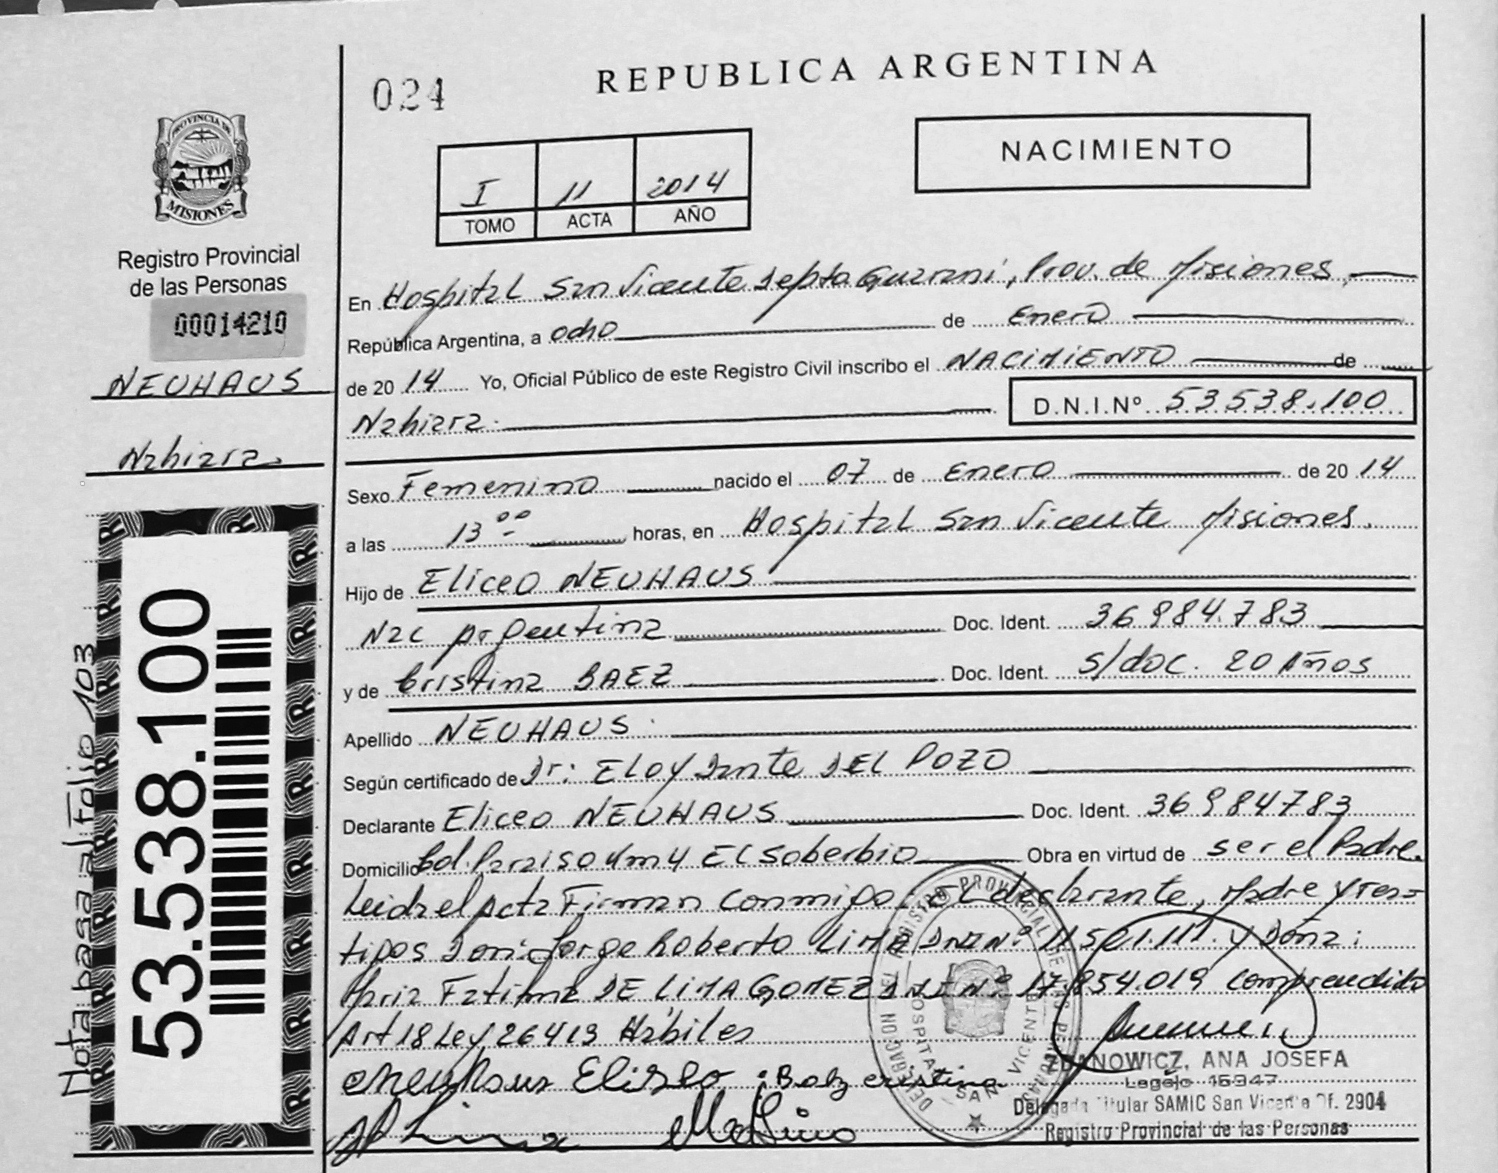 024
REPUBLICA ARGENTINA
NACIMIENTO
I 11 2014
TOMO ACTA AÑO
PROVINCIA DE
MISIONES
Registro Provincial
de las Personas
00014210
NEUHAUS
Nahiara
53.538.100
Nota pasa al Folio 103
En Hospital San Vicente Depto Guaraní, Prov. de Misiones,
República Argentina, a ocho de Enero
de 2014 Yo, Oficial Público de este Registro Civil inscribo el NACIMIENTO de
Nahiara. D.N.I.Nº 53.538.100
Sexo Femenino nacido el 07 de Enero de 2014
a las 13 00 horas, en Hospital San Vicente Misiones.
Hijo de Eliceo NEUHAUS
Nac Argentina Doc. Ident. 36984.783
y de Cristina BAEZ Doc. Ident. s/doc. 20 Años
Apellido NEUHAUS.
Según certificado de Dr: ELOY Dante DEL POZO
Declarante Eliceo NEUHAUS Doc. Ident. 36984783
Domicilio Col. Paraiso Km 4 El Soberbio Obra en virtud de ser el Padre.
Leida el Acta Firman conmigo: el declarante, Madre y tes-
tigos Don: Jorge Roberto LIMA DNI Nº 11.501.111. y Doña:
Maria Fatima DE LIMA GOMEZ DNI Nº 17.854.019 comprendido
Art 18 Ley 26413 Hábiles
Neuhaus Eliseo Baez cristina
REGISTRO PROVINCIAL DE LAS PERSONAS
DELEGACION HOSPITAL SAN VICENTE
ZDANOWICZ, ANA JOSEFA
Legajo 16347
Delegada Titular SAMIC San Vicente Of. 2904
Registro Provincial de las Personas